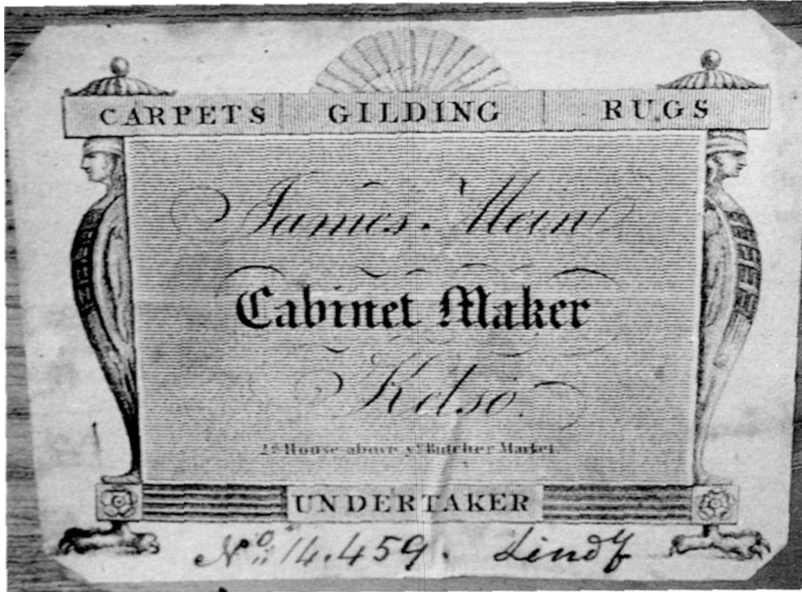 CARPETS GILDING RUGS
James Mein
Cabinet Maker
Kelso.
2d. House above ye. Butcher Market.
UNDERTAKER
No. 14.459.